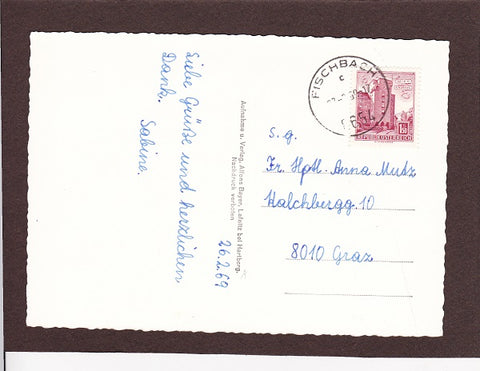 Liebe Grüße und herzlichen
Dank.
Sabine.
26.2.69
Aufnahme u. Verlag, Alfons Beyer, Lafnitz bei Hartberg.
Nachdruck verboten
FISCHBACH
c
8654
REPUBLIK ÖSTERREICH
s. g.
Fr. Hptl. Anna Mutz
Halchbergg. 10
8010 Graz